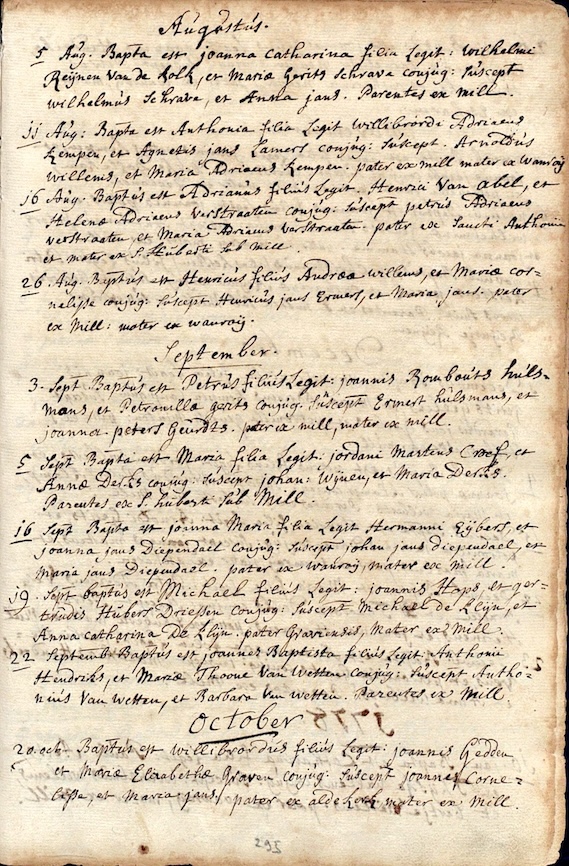 Augustus.
5 Aug. Bapta est joanna Catharina filia Legit: Wilhelmi
Reijnen van de Kolk, et Mariæ Gerits Schrava conjug: suscept
wilhelmus Schrava, et Anna jans. Parentes ex Mill.
11 Aug: Bapta est Anthonia filia Legit willibrordi Adriaens
Kempen, et Agnetis jans Lamers conjug: suscept. Arnoldus
willems, et Maria Adriaens Kempen. pater ex mill mater ex wanroij
16 Aug. Baptus est Adrianus filius Legit. Henrici van abel, et
Helenæ Adriaens verstraaten conjug: suscept petrus Adriaens
verstraaten, et Maria Adriaens verstraaten. pater ex Sancti Anthonii
et mater ex S Huberti sub mill.
26 Aug. Baptus est Henricus filius Andreæ willems, et Mariæ cor=
nelisse conjug: suscept Henricus jans Ermers, et Maria jans. pater
ex Mill: mater ex wanroij.
September.
3. Sept Baptus est Petrus filius Legit: joannis Rombouts huls=
mans, et Petronillæ gerits conjug. suscept Ermert hulsmans, et
joanna peters Geurdts. pater ex mill, mater ex mill.
5 Sept Bapta est Maria filia Legit. jordani Martens Croef, et
Annæ Derks conjug: suscept johan: Wijnen, et Maria Derks.
Parentes ex S hubert sub Mill.
16 Sept Bapta est joanna Maria filia Legit Hermanni Eijbers, et
joanna jans Diependael conjug: suscept johan jans Diependael, et
maria jans Diependael. pater ex wanroij, mater ex mill.
19. Sept baptus est Michael filius Legit: joannis Hops, et ger=
trudis Hubers Driessen conjug: suscept Michael de Klijn, et
Anna catharina De Klijn. pater Graviensis, Mater ex Mill.
22 Septemb Baptus est joannes Baptista filius Legit. Anthonii
Hendriks, et Mariæ Thoone Van Wetten conjug: suscept Antho=
nius Van Wetten, et Barbara Van Wetten. Parentes ex Mill.
October
20. octo Baptus est willibrordus filius Legit: joannis Gedden
et Mariæ Elizabethæ Graven conjug: suscept joannes Corne=
lisse, et Maria jans/ pater ex mater ex Mill.
295